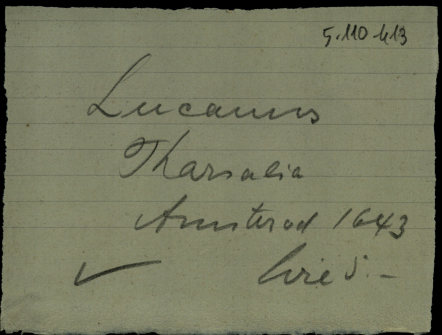 5.110.413
Lucanus
Pharsalia
Amsterod 1643